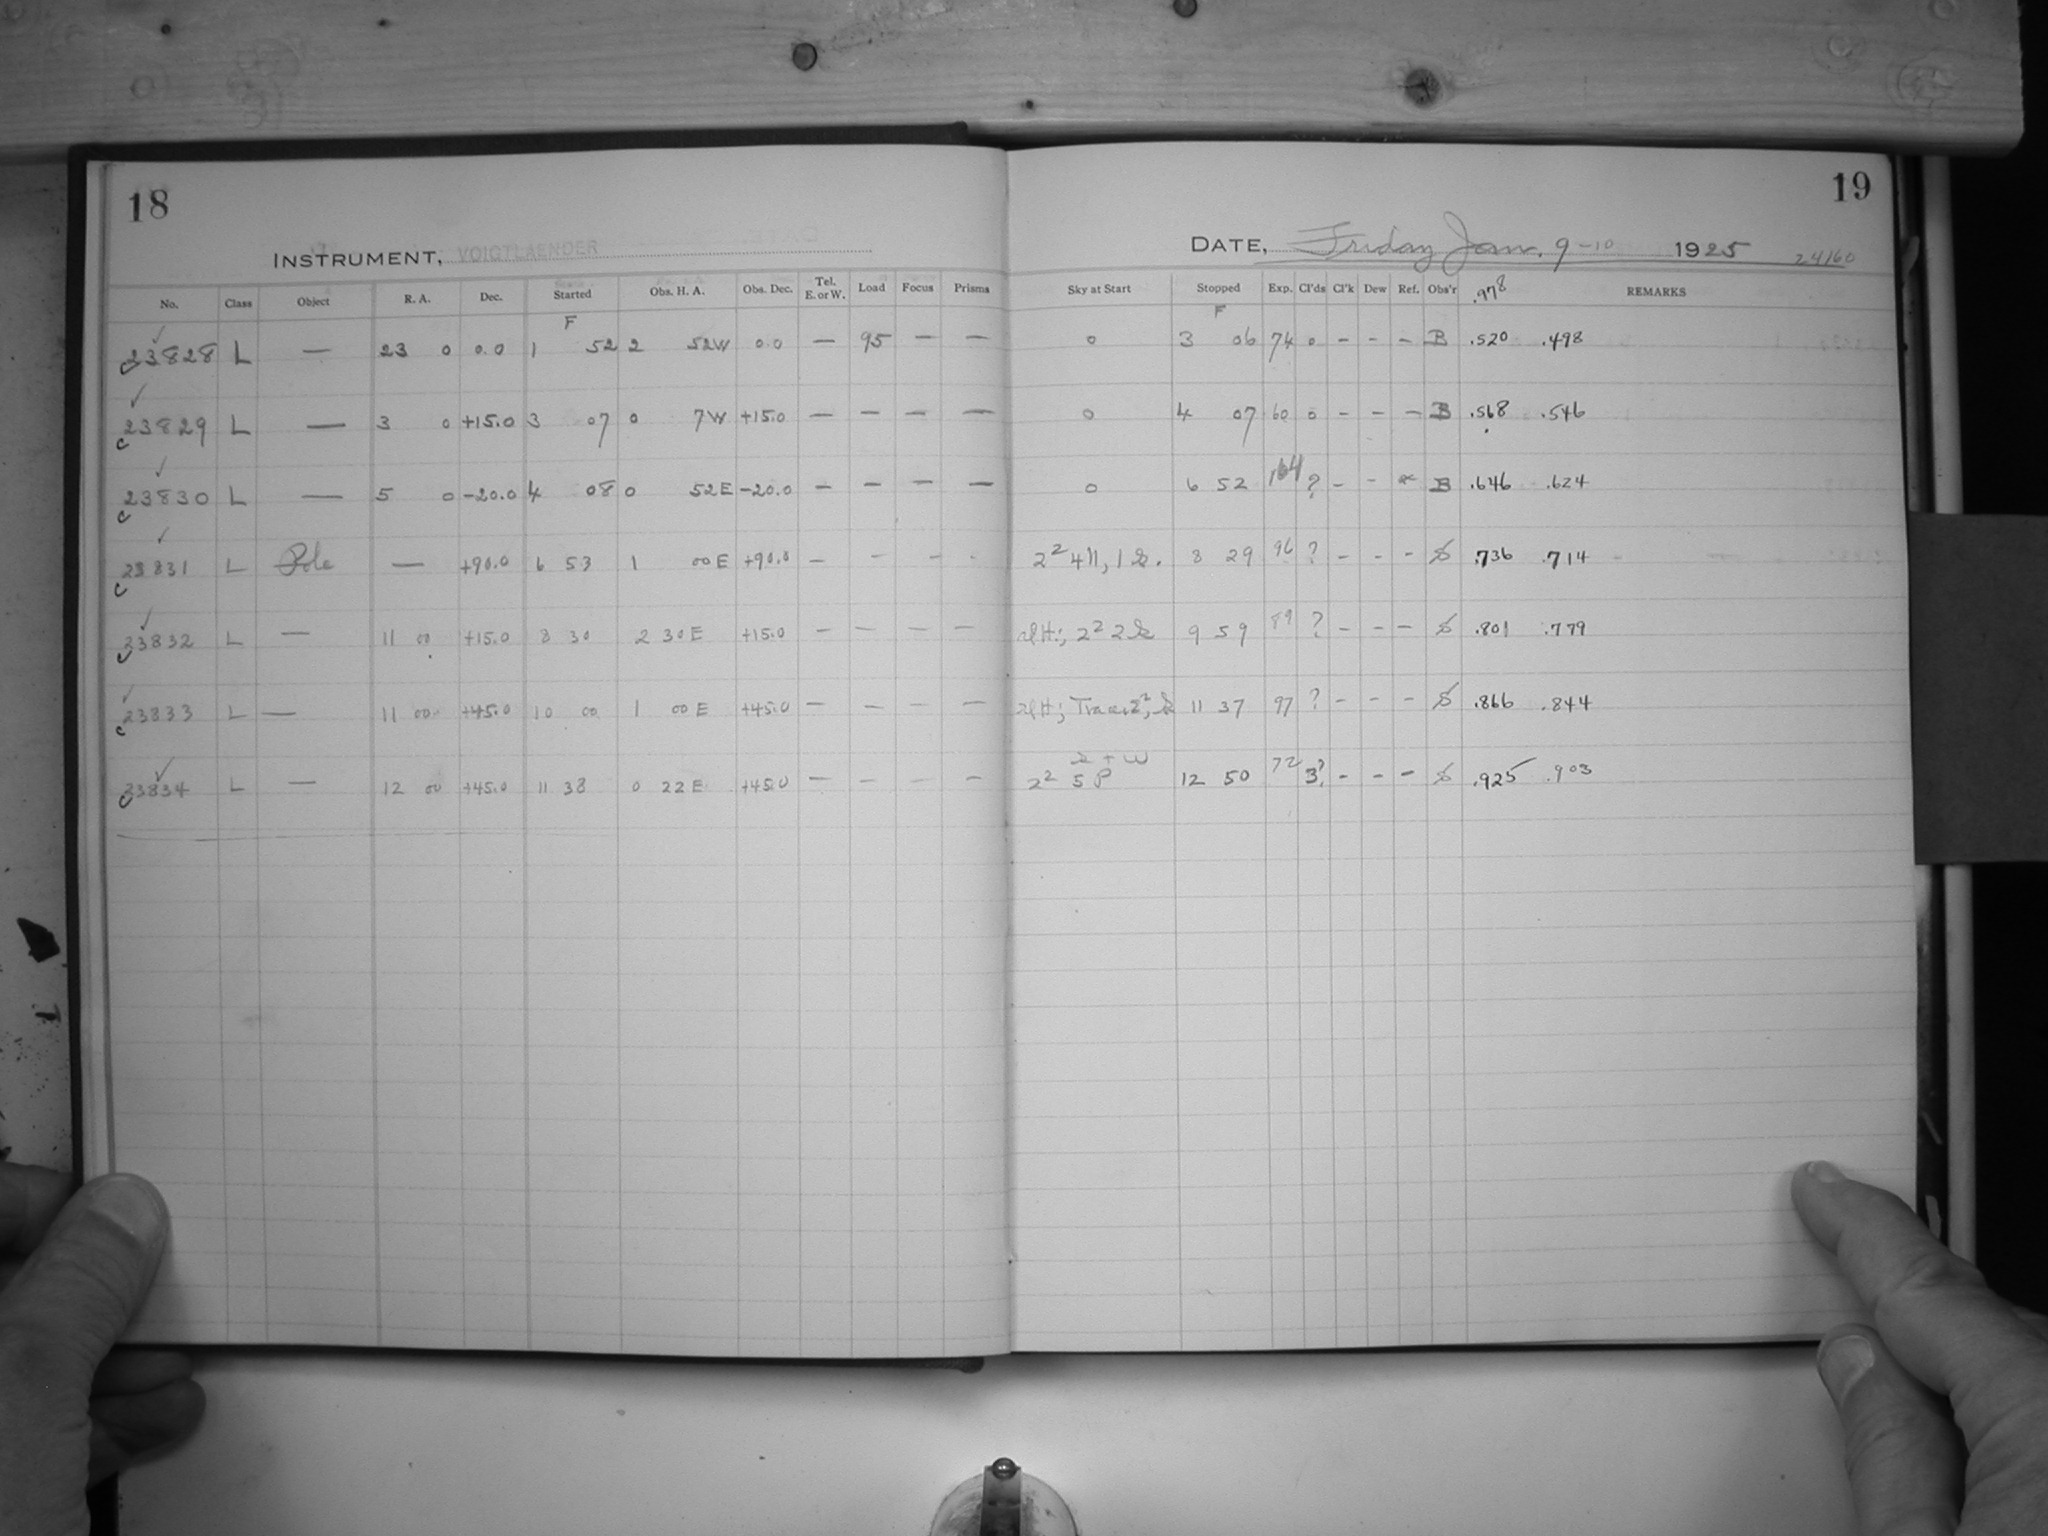 18
INSTRUMENT, VOIGTLAENDER
No. Class Object R. A. Dec. Started Obs. H. A. Obs. Dec. Tel. E. or W. Load Focus Prisms
F
23828 L — 23 0 0.0 1 52 2 52W 0.0 — 95 — —
23829 L — 3 0 +15.0 3 07 0 7W +15.0 — — — —
23830 L — 5 0 -20.0 4 08 0 52E -20.0 — — — —
23831 L Pole — +90.0 6 53 1 00E +90.0 — - - -
23832 L — 11 00 +15.0 8 30 2 30E +15.0 — — — —
23833 L — 11 00 +45.0 10 00 1 00E +45.0 — — — —
23834 L — 12 00 +45.0 11 38 0 22E +45.0 — — — —
19
DATE, Friday Jan. 9-10 1925 24160
Sky at Start Stopped Exp. Cl'ds Cl'k Dew Ref. Obs'r .978 REMARKS
F
0 3 06 74 0 - - - B .520 .498
0 4 07 60 0 - - - B .568 .546
0 6 52 164 ? - - B .646 .624
2² 4 8 29 96 ? - - - .736 .714
2² 2 9 59 89 ? - - - .801 .779
11 37 97 ? - - - .866 .844
+ W
2² 5 P 12 50 72 3? - - - .925 .903